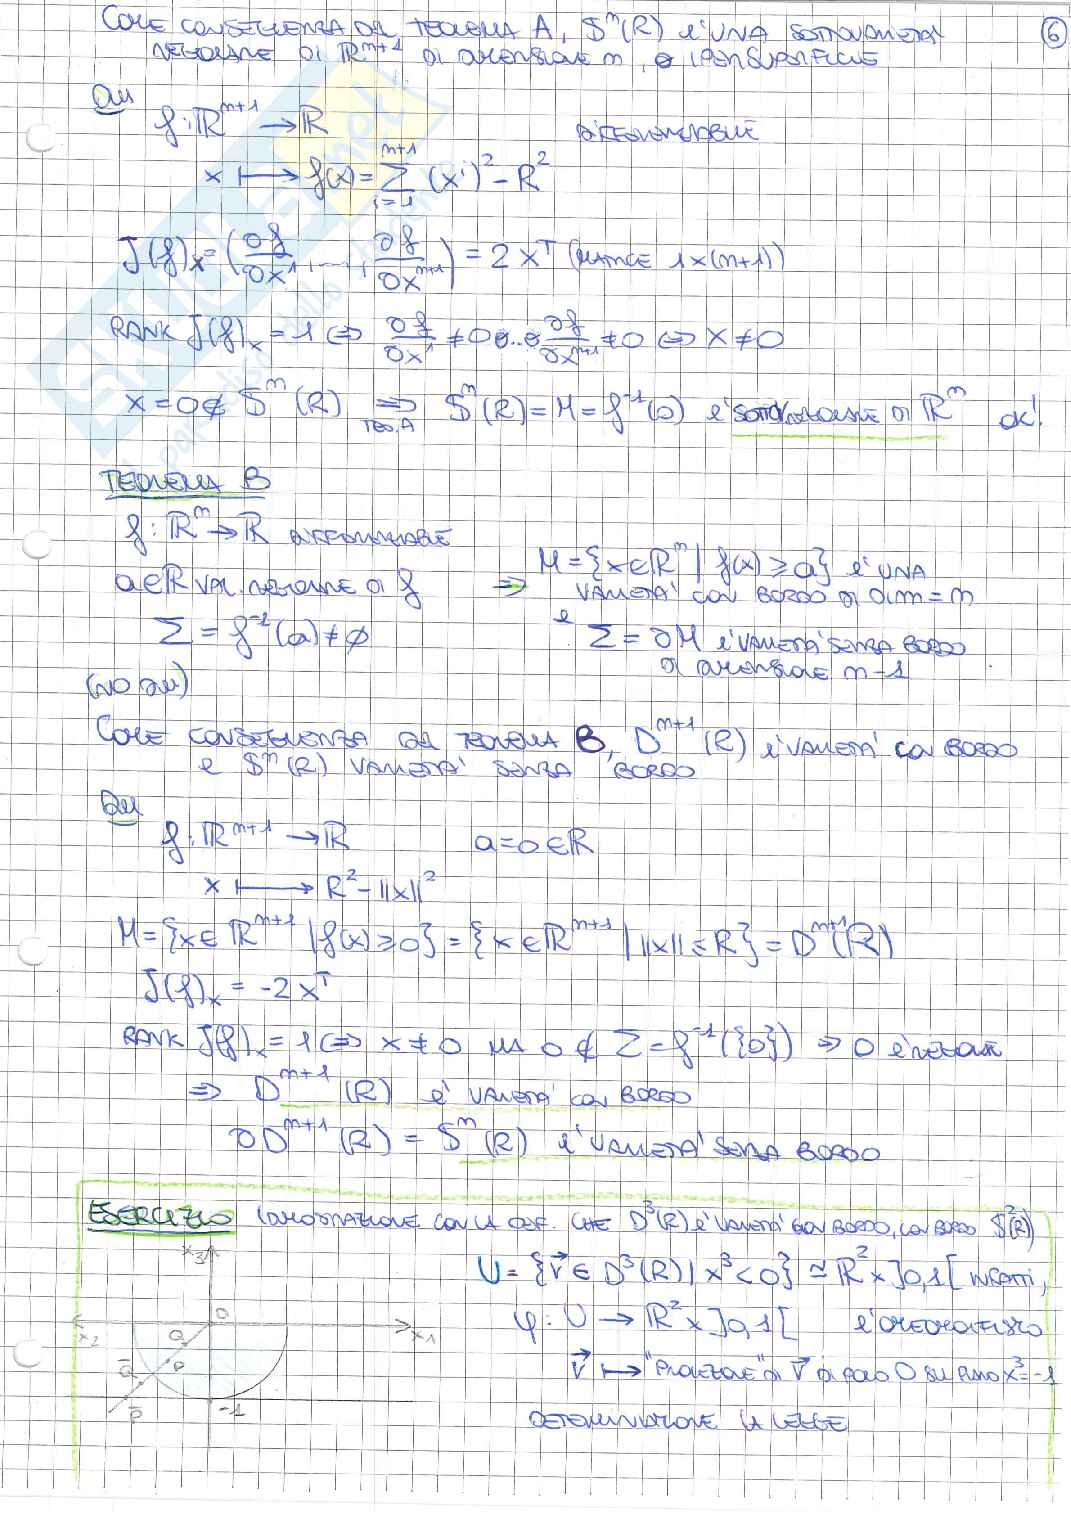 COME CONSEGUENZA DEL TEOREMA A, Sⁿ(R) È UNA SOTTOVARIETÀ ⑥
REGOLARE DI ℝⁿ⁺¹ DI DIMENSIONE n, O IPERSUPERFICIE
DIM
f: ℝⁿ⁺¹ → ℝ DIFFERENZIABILE
x ⟼ f(x) = Σ_{i=1}^{n+1} (xⁱ)² − R²
J(f)ₓ = (∂f/∂x¹, ..., ∂f/∂xⁿ⁺¹) = 2xᵀ (MATRICE 1×(n+1))
RANK J(f)ₓ = 1 ⇔ ∂f/∂x¹ ≠ 0 o..o ∂f/∂xⁿ⁺¹ ≠ 0 ⇔ x ≠ 0
x = 0 ∉ Sⁿ(R) ⇒ (TEO. A) Sⁿ(R) = M = f⁻¹(0) È SOTTOV. REGOLARE DI ℝⁿ OK!
TEOREMA B
f: ℝⁿ → ℝ DIFFERENZIABILE
a∈ℝ VAL. REGOLARE DI f ⇒ M = {x∈ℝⁿ | f(x) ≥ a} È UNA
VARIETÀ CON BORDO DI DIM = n
Σ = f⁻¹(a) ≠ ∅ e Σ = ∂M È VARIETÀ SENZA BORDO
DI DIMENSIONE n−1
(NO DIM)
COME CONSEGUENZA DEL TEOREMA B, Dⁿ⁺¹(R) È VARIETÀ CON BORDO
E Sⁿ(R) VARIETÀ SENZA BORDO
DIM
f: ℝⁿ⁺¹ → ℝ a = 0 ∈ ℝ
x ⟼ R² − ||x||²
M = {x ∈ ℝⁿ⁺¹ | f(x) ≥ 0} = {x ∈ ℝⁿ⁺¹ | ||x|| ≤ R} = Dⁿ⁺¹(R)
J(f)ₓ = −2xᵀ
RANK J(f)ₓ = 1 ⇔ x ≠ 0 MA 0 ∉ Σ = f⁻¹({0}) ⇒ 0 È REGOLARE
⇒ Dⁿ⁺¹(R) È VARIETÀ CON BORDO
∂Dⁿ⁺¹(R) = Sⁿ(R) È VARIETÀ SENZA BORDO
ESERCIZIO (DIMOSTRAZIONE CON LA DEF. CHE D³(R) È VARIETÀ CON BORDO, CON BORDO S²(R))
U = {v⃗ ∈ D³(R) | x³ < 0} ≅ ℝ² × ]0,1[ INFATTI,
φ: U → ℝ² × ]0,1[ È OMEOMORFISMO
v⃗ ⟼ "PROIEZIONE" DI v⃗ DI POLO O SUL PIANO x³ = −1
DETERMINIAMONE LA LEGGE
x₃
O
x₂
x₁
Q
P
Q̄
P̄
−1